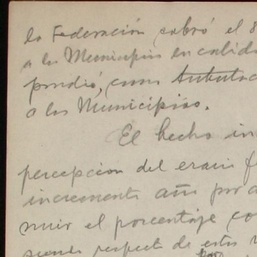 la Federación cobró el 8
a los Municipios en calida
como tributac
a los Municipios.
El hecho in
percepción del erario f
incremente año por a
nuir el porcentaje co
respecto de estos
por